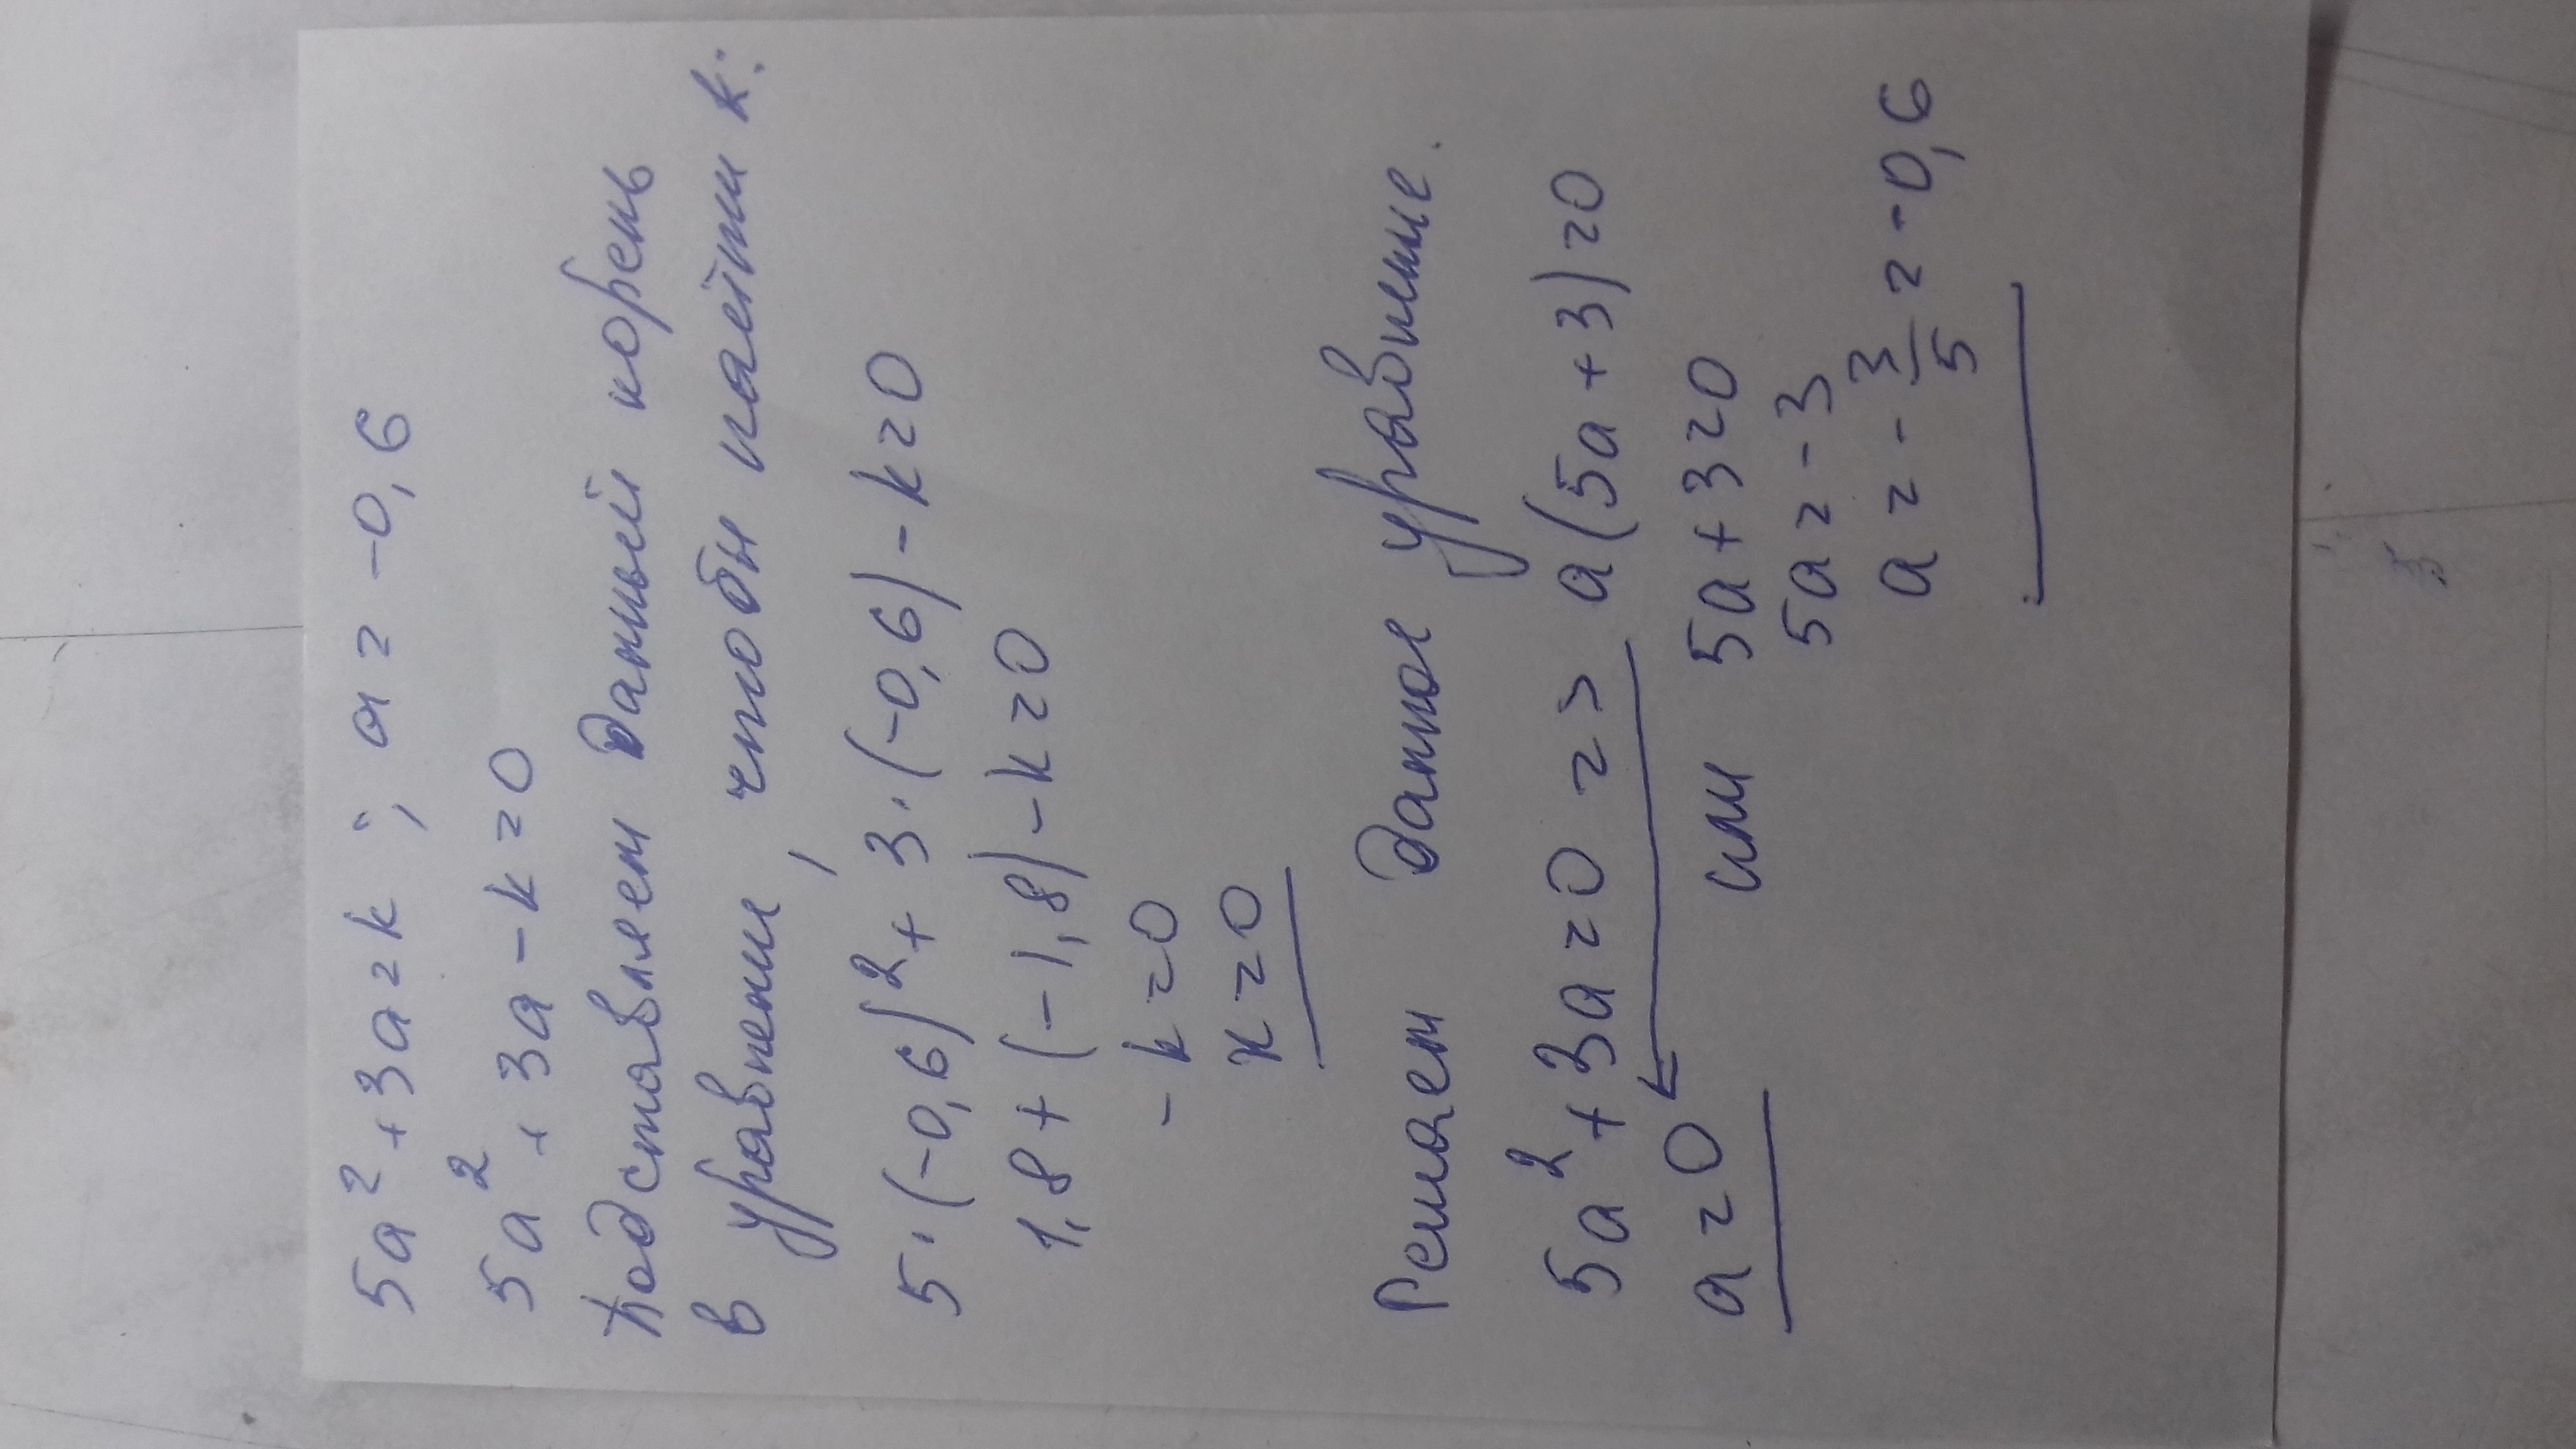 5a² + 3a = k ; a = -0,6
5a² + 3a - k = 0
Подставляем данный корень
в уравнение, чтобы найти k:
5·(-0,6)² + 3·(-0,6) - k = 0
1,8 + (-1,8) - k = 0
- k = 0
k = 0
Решаем данное уравнение.
5a² + 3a = 0 => a(5a + 3) = 0
a = 0 или 5a + 3 = 0
5a = -3
a = - 3/5 = -0,6